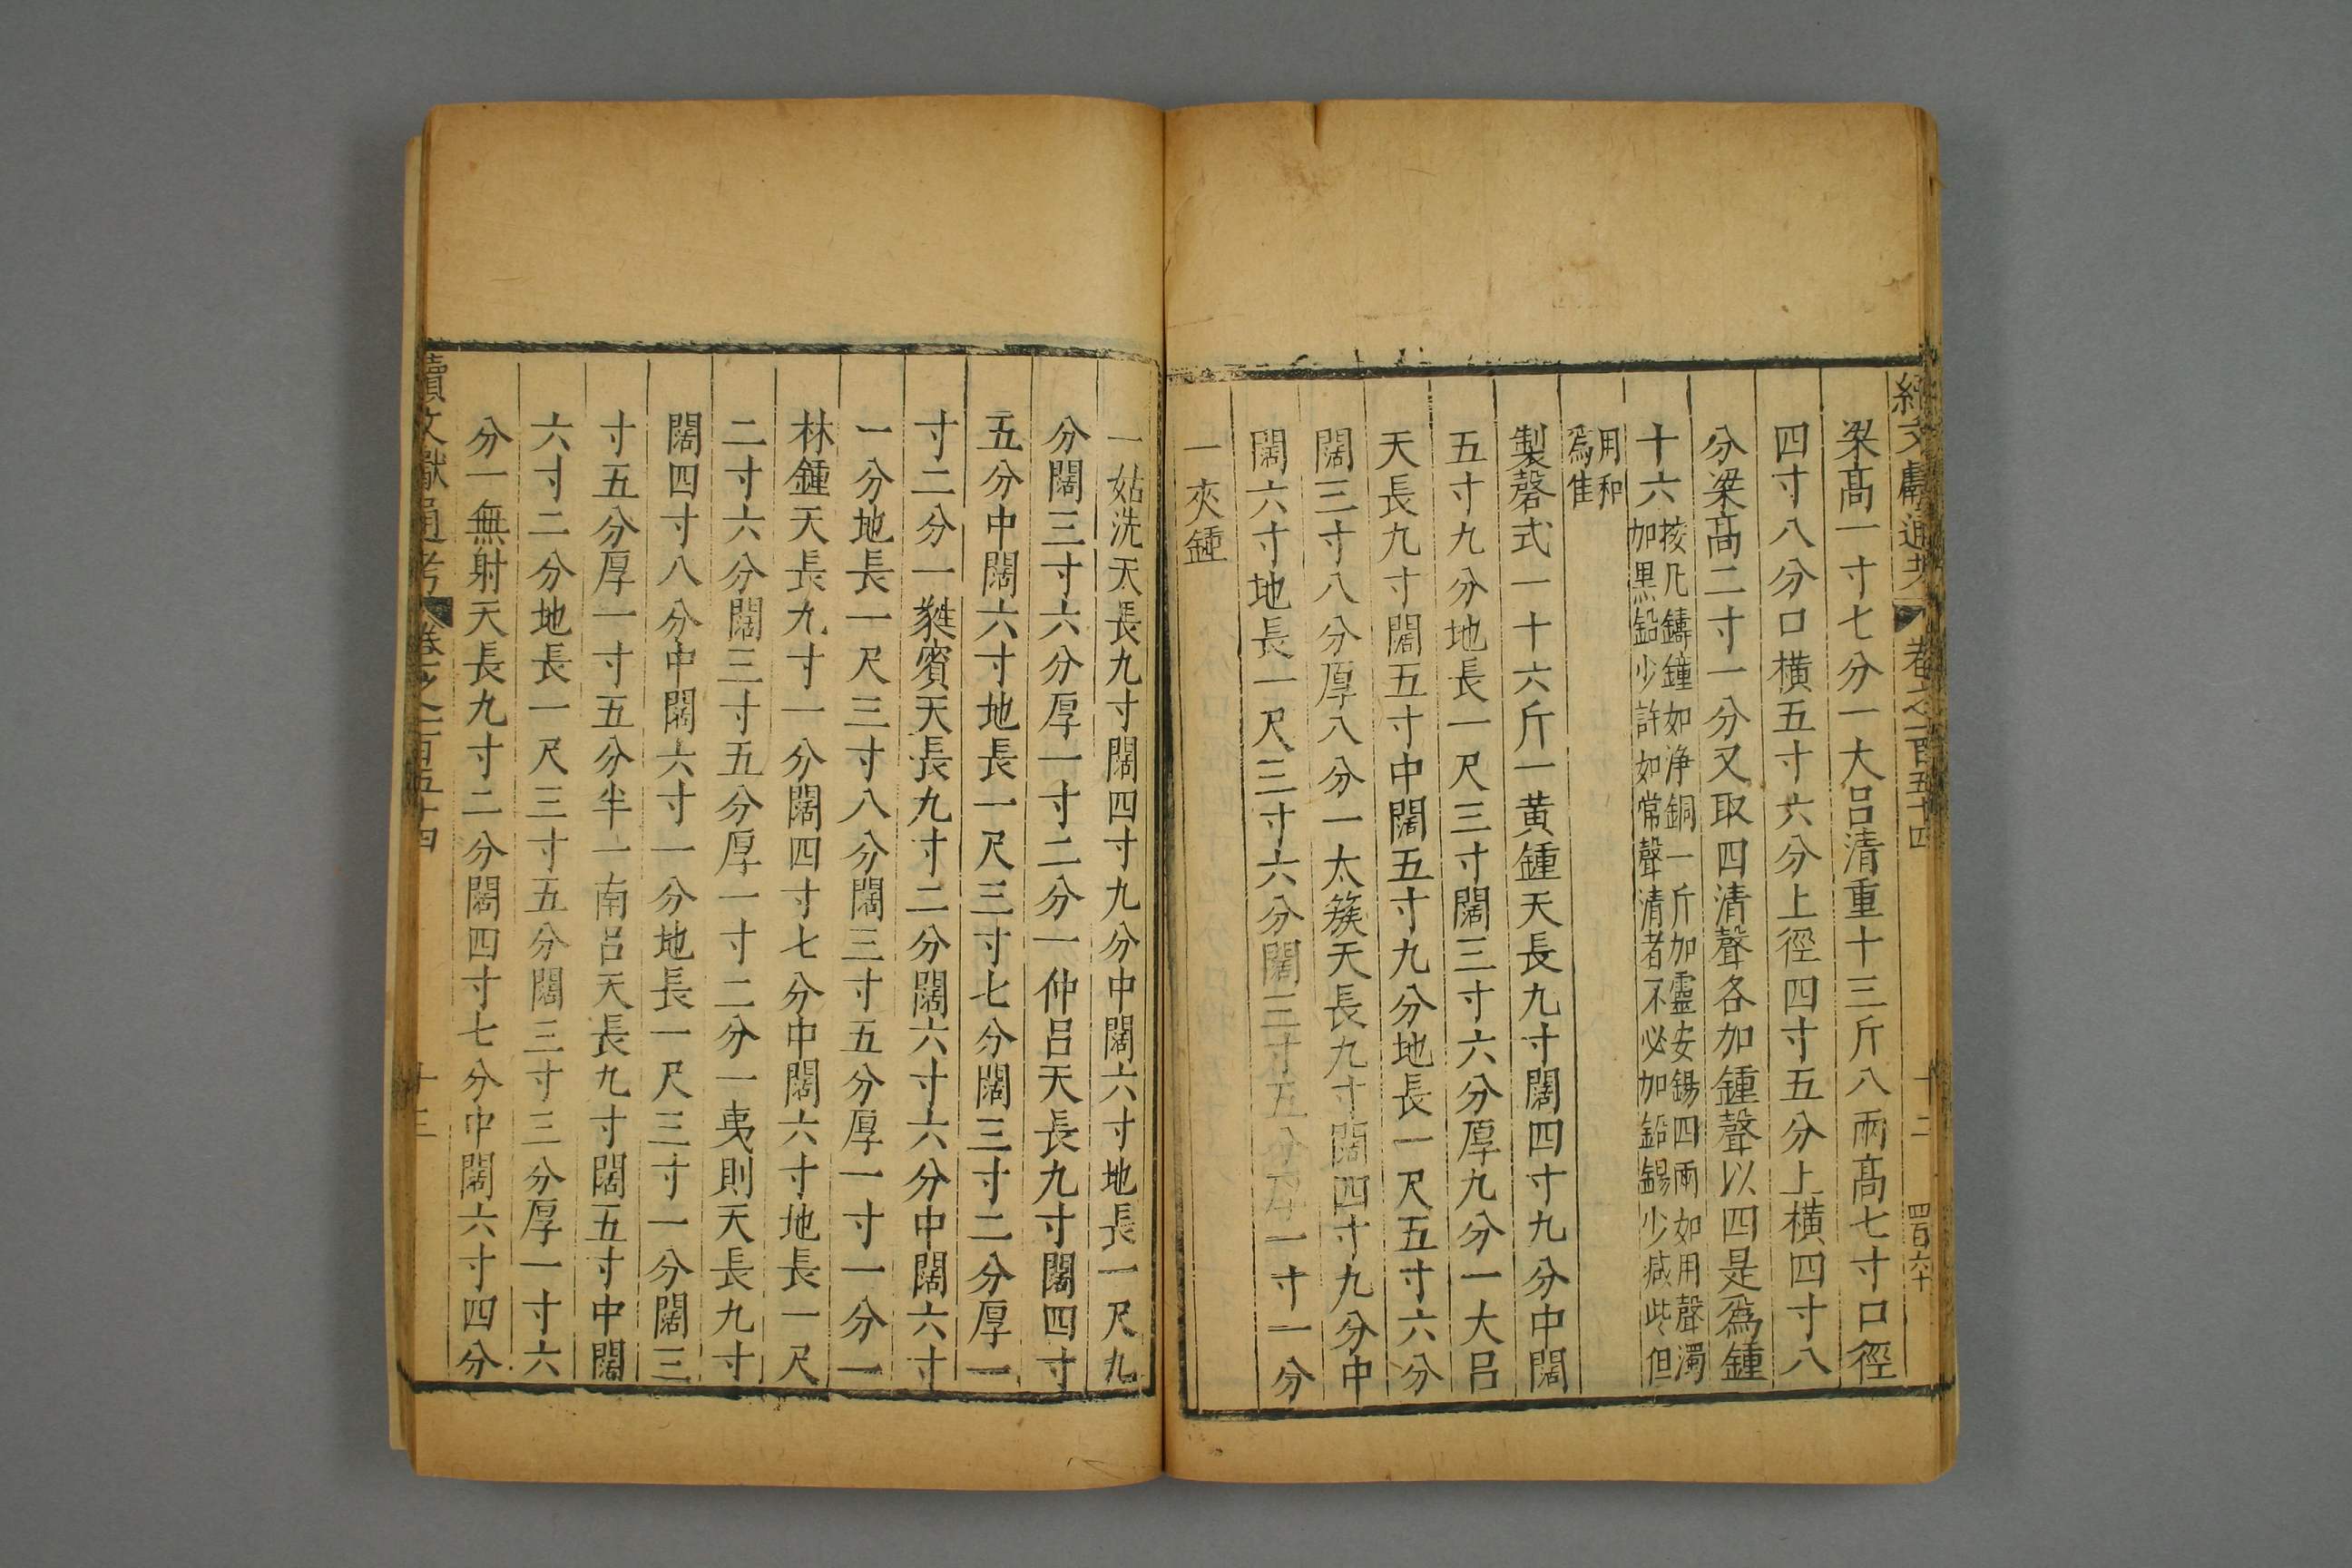 續文獻通考 卷之一百五十四 十二 四百六十
梁高一寸七分一大呂清重十三斤八兩高七寸口徑
四寸八分口橫五寸六分上徑四寸五分上橫四寸八
分梁高二寸一分又取四清聲各加鍾聲以四是爲鍾
十六按凡鑄鐘如淨銅一斤加靈安錫四兩如用聲濁
加黑鉛少許如常聲清者不必加鉛錫少減此但
用和
爲隹
製磬式一十六斤一黃鍾天長九寸闊四寸九分中闊
五寸九分地長一尺三寸闊三寸六分厚九分一大呂
天長九寸闊五寸中闊五寸九分地長一尺五寸六分
闊三寸八分厚八分一太簇天長九寸闊四寸九分中
闊六寸地長一尺三寸六分闊三寸五分厚一寸一分
一夾鍾
一姑洗天長九寸闊四寸九分中闊六寸地長一尺九
分闊三寸六分厚一寸二分一仲呂天長九寸闊四寸
五分中闊六寸地長一尺三寸七分闊三寸二分厚一
寸二分一蕤賓天長九寸二分闊六寸六分中闊六寸
一分地長一尺三寸八分闊三寸五分厚一寸一分一
林鍾天長九寸一分闊四寸七分中闊六寸地長一尺
二寸六分闊三寸五分厚一寸二分一夷則天長九寸
闊四寸八分中闊六寸一分地長一尺三寸一分闊三
寸五分厚一寸五分半一南呂天長九寸闊五寸中闊
六寸二分地長一尺三寸五分闊三寸三分厚一寸六
分一無射天長九寸二分闊四寸七分中闊六寸四分
續文獻通考 卷之一百五十四 十三